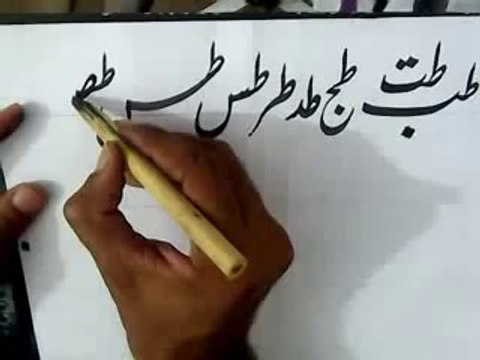 طب طت طج طد طر طس طس